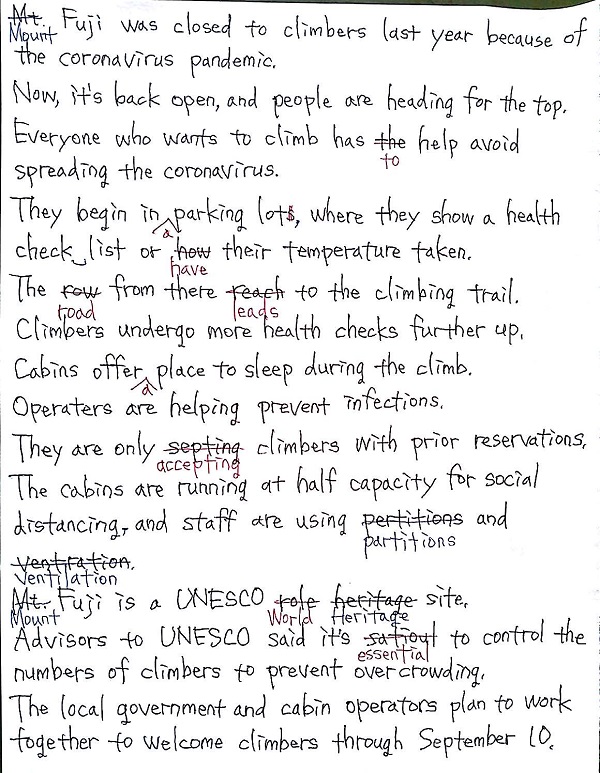 Mt. Fuji was closed to climbers last year because of
Mount
the coronavirus pandemic.
Now, it's back open, and people are heading for the top.
Everyone who wants to climb has the help avoid
to
spreading the coronavirus.
They begin in parking lots, where they show a health
a
check list or how their temperature taken.
have
The row from there reach to the climbing trail.
road leads
Climbers undergo more health checks further up.
Cabins offer place to sleep during the climb.
a
Operaters are helping prevent infections.
They are only septing climbers with prior reservations.
accepting
The cabins are running at half capacity for social
distancing, and staff are using pertitions and
partitions
ventration.
ventilation
Mt. Fuji is a UNESCO role heritage site.
Mount World Heritage
Advisors to UNESCO said it's satioul to control the
essential
numbers of climbers to prevent overcrowding.
The local government and cabin operators plan to work
together to welcome climbers through September 10.